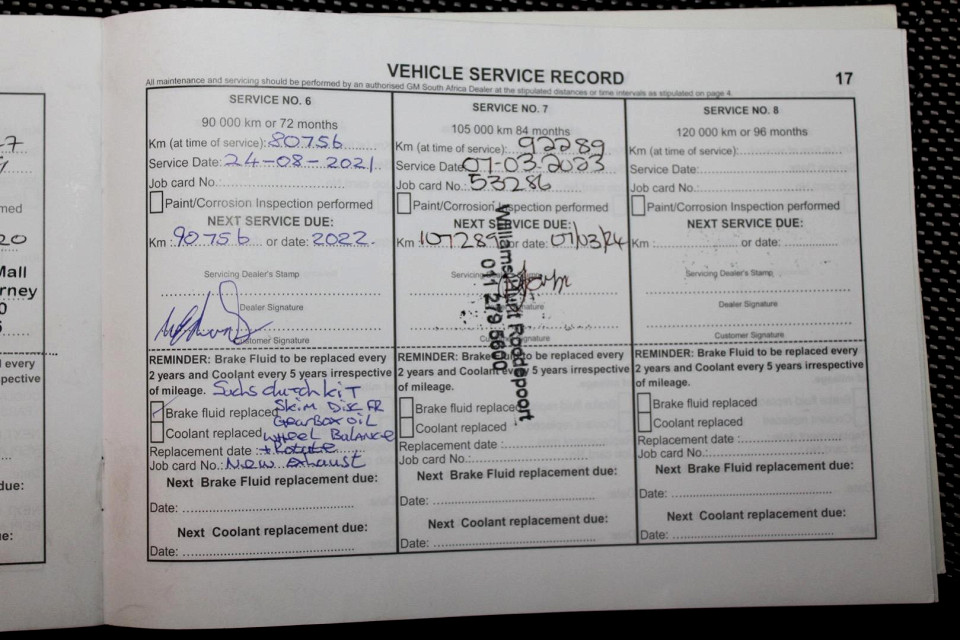 VEHICLE SERVICE RECORD
17
All maintenance and servicing should be performed by an authorised GM South Africa Dealer at the stipulated distances or time intervals as stipulated on page 4.
SERVICE NO. 6
90 000 km or 72 months
Km (at time of service): 80756
Service Date: 24-08-2021
Job card No.:
Paint/Corrosion Inspection performed
NEXT SERVICE DUE:
Km : 90756 or date: 2022.
Servicing Dealer's Stamp
Dealer Signature
Customer Signature
REMINDER: Brake Fluid to be replaced every
2 years and Coolant every 5 years irrespective
of mileage. Sachs clutch kit
Skim Disc FR
Brake fluid replaced
Gearbox oil
Coolant replaced Wheel Balance
Replacement date : + Rotate
Job card No.: New exhaust
Next Brake Fluid replacement due:
Date:
Next Coolant replacement due:
Date:
SERVICE NO. 7
105 000 km 84 months
Km (at time of service): 92289
Service Date 07-03-2023
Job card No.: 53286
Paint/Corrosion Inspection performed
NEXT SERVICE DUE:
Km 107289 or date: 07/03/24
Williams Hunt Roodepoort
011 279 5600
REMINDER: Brake Fluid to be replaced every
2 years and Coolant every 5 years irrespective
of mileage.
Brake fluid replaced
Coolant replaced
Replacement date :
Job card No.:
Next Brake Fluid replacement due:
Date:
Next Coolant replacement due:
Date:
SERVICE NO. 8
120 000 km or 96 months
Km (at time of service):
Service Date:
Job card No.:
Paint/Corrosion Inspection performed
NEXT SERVICE DUE:
Km : or date:
Servicing Dealer's Stamp
Dealer Signature
Customer Signature
REMINDER: Brake Fluid to be replaced every
2 years and Coolant every 5 years irrespective
of mileage.
Brake fluid replaced
Coolant replaced
Replacement date :
Job card No.:
Next Brake Fluid replacement due:
Date:
Next Coolant replacement due:
Date: